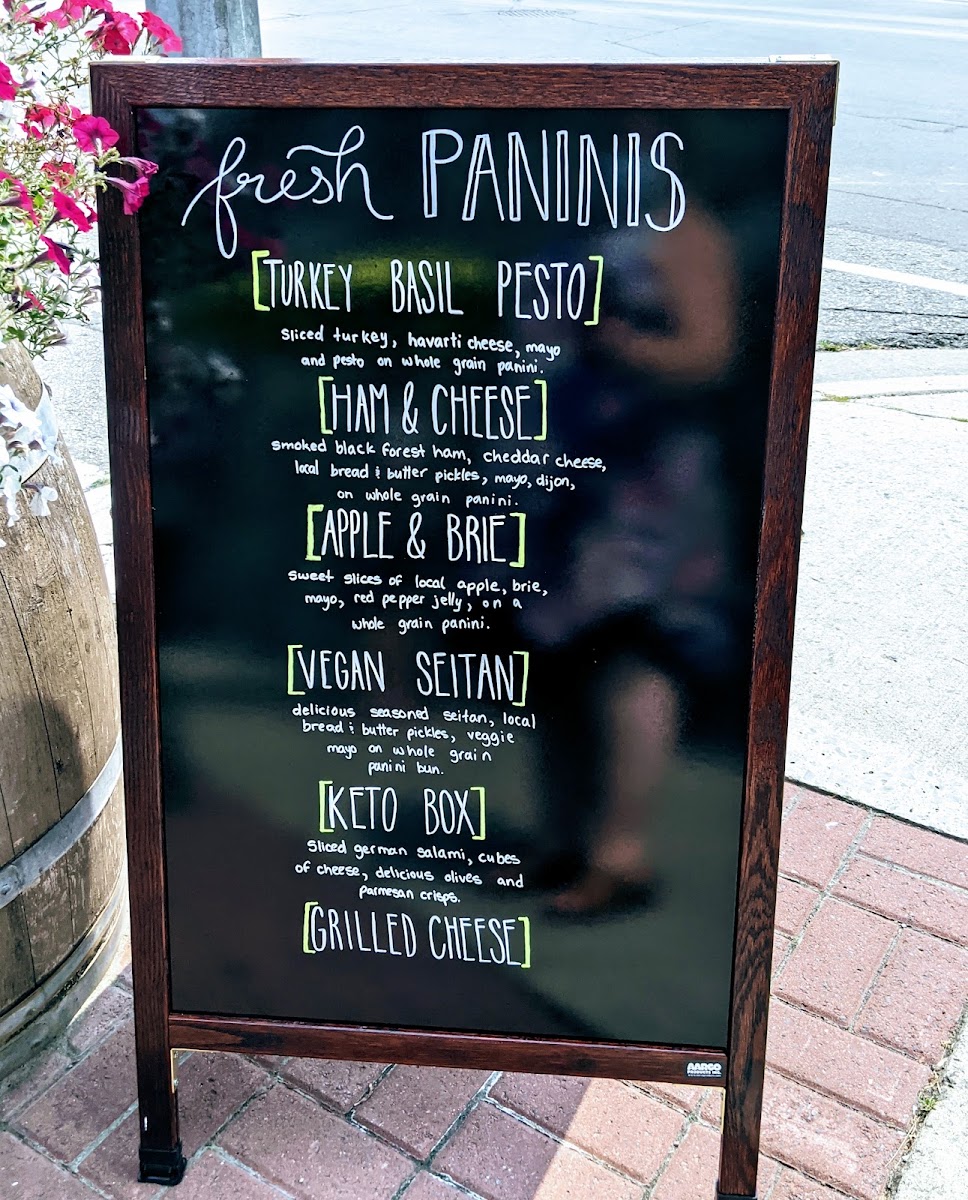 fresh PANINIS
[TURKEY BASIL PESTO]
sliced turkey, havarti cheese, mayo
and pesto on whole grain panini.
[HAM & CHEESE]
smoked black forest ham, cheddar cheese,
local bread & butter pickles, mayo, dijon,
on whole grain panini.
[APPLE & BRIE]
sweet slices of local apple, brie,
mayo, red pepper jelly, on a
whole grain panini.
[VEGAN SEITAN]
delicious seasoned seitan, local
bread & butter pickles, veggie
mayo on whole grain
panini bun.
[KETO BOX]
sliced german salami, cubes
of cheese, delicious olives and
parmesan crisps.
[GRILLED CHEESE]
AARCO
PRODUCTS INC.